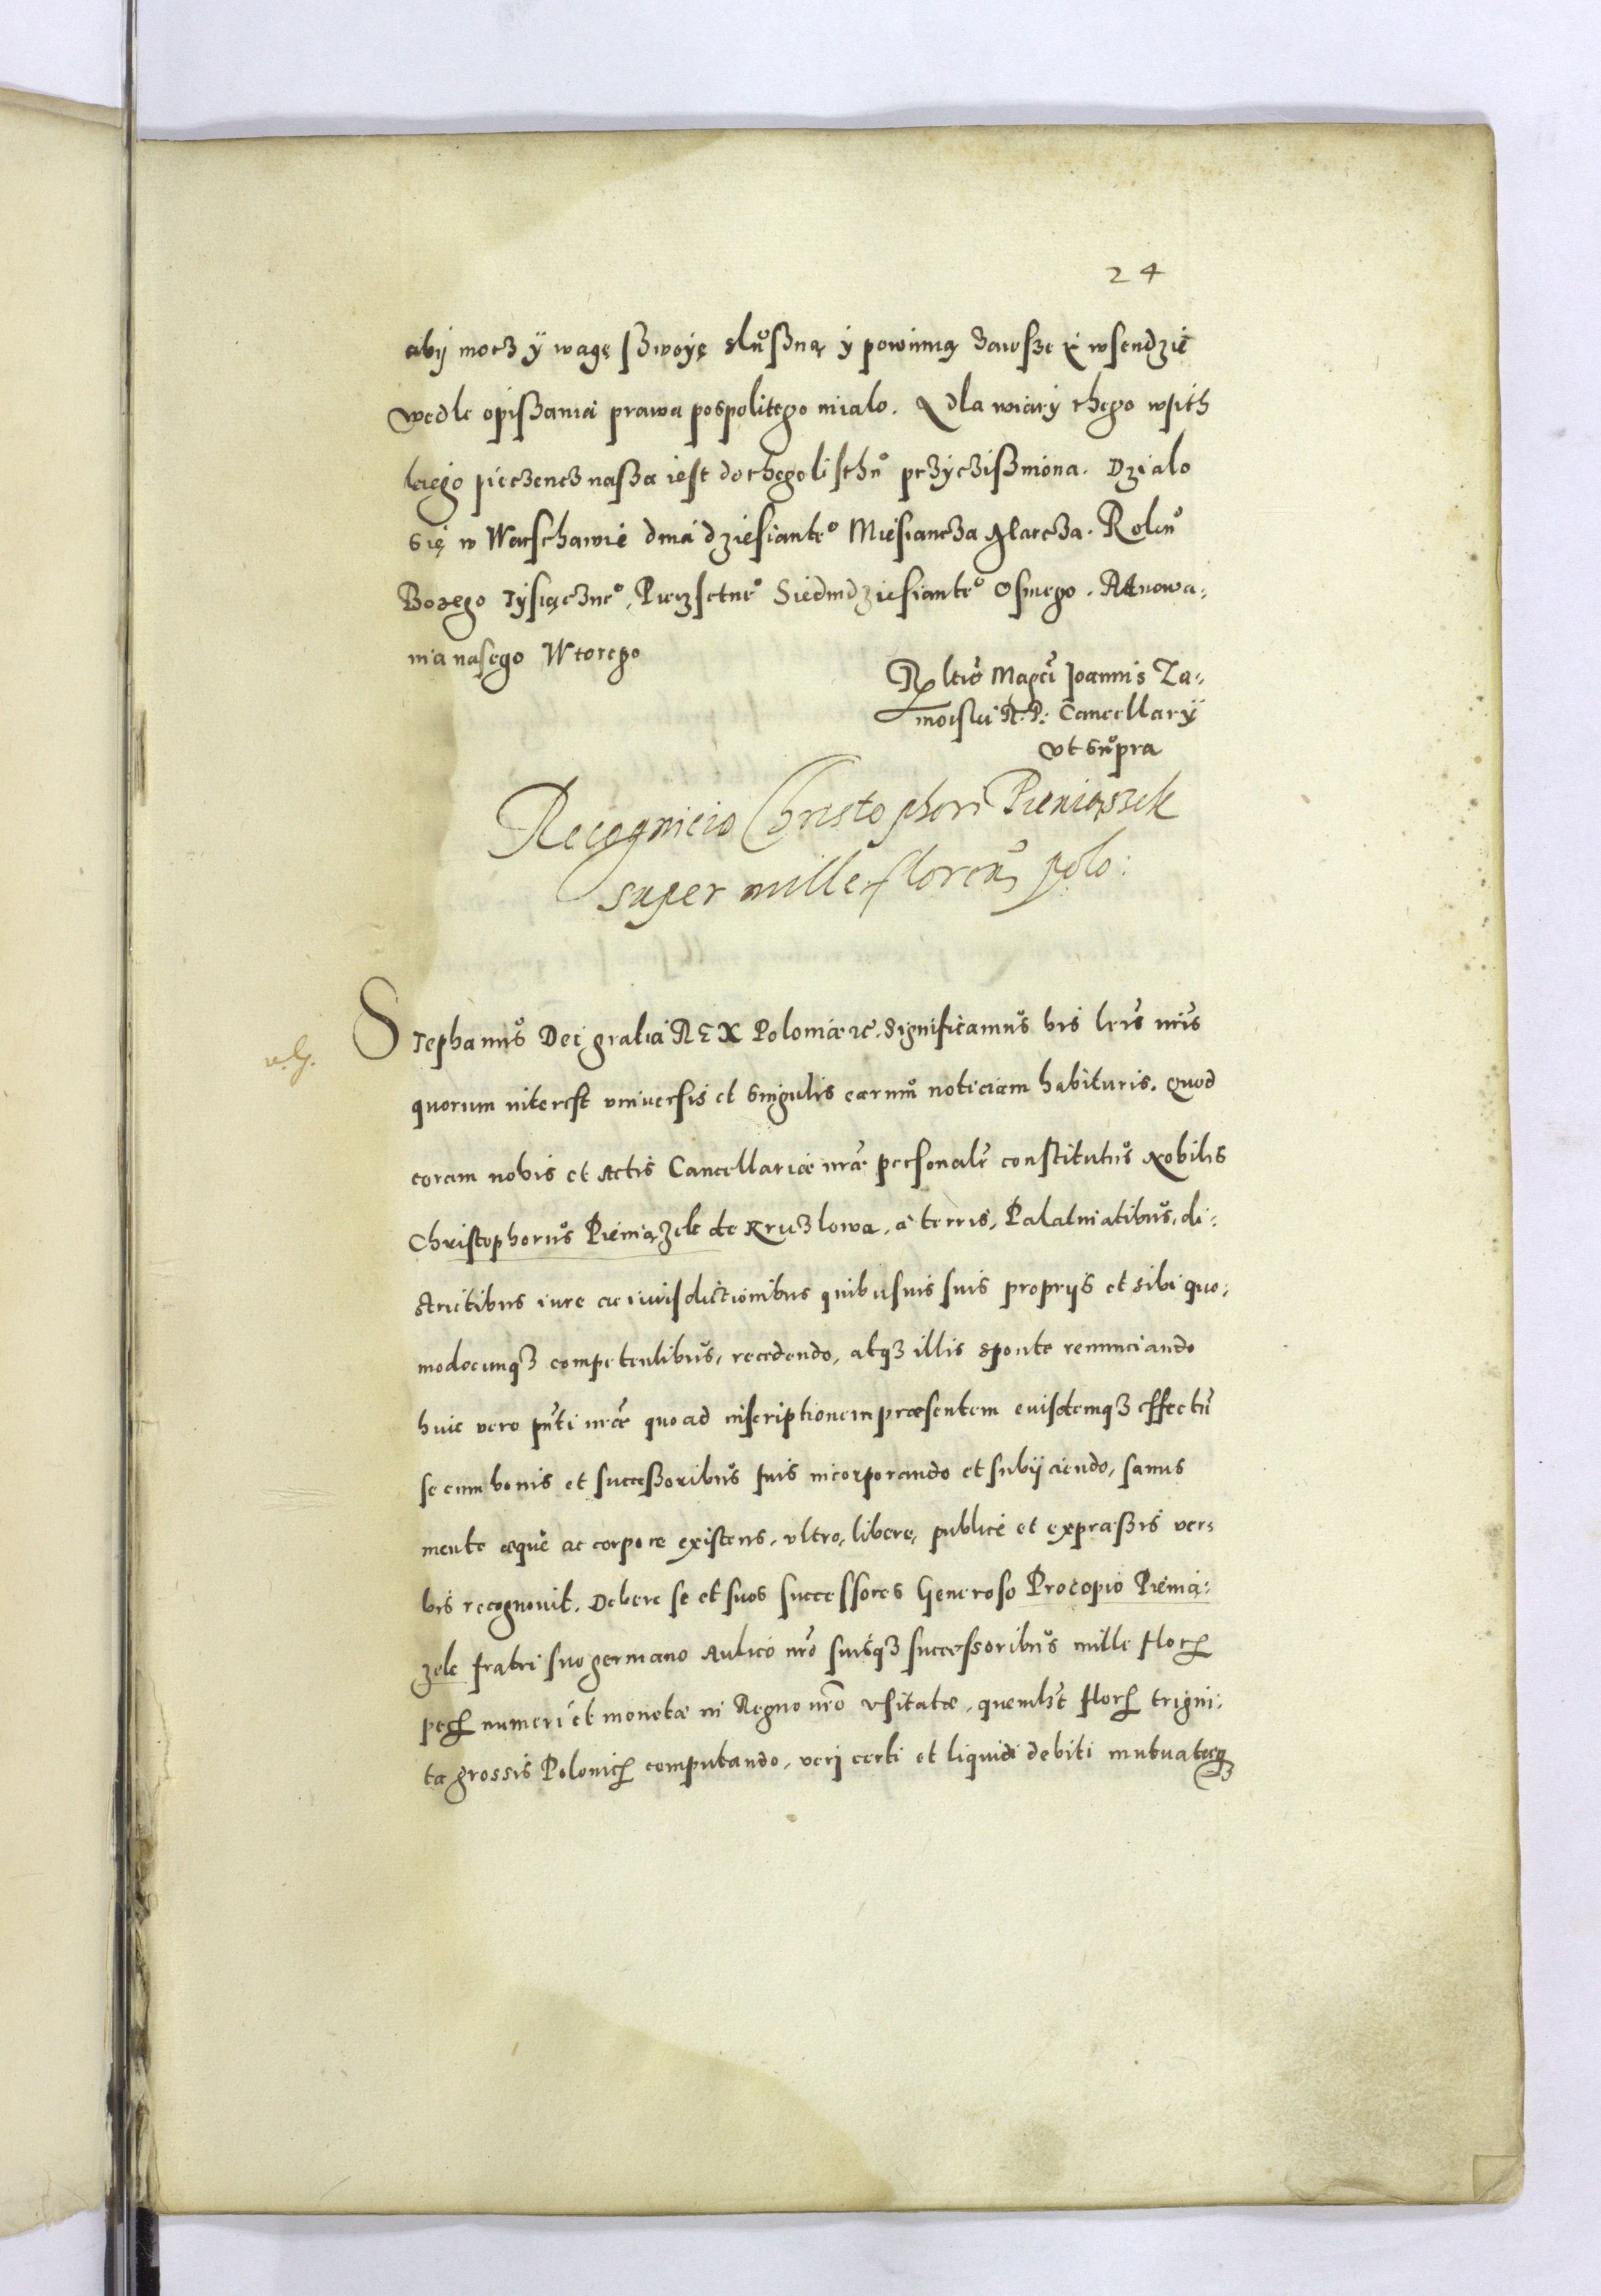 24
abij mocz ÿ wagę szwoyę sluszną ÿ powinną zawsze y wsendzie
wedle opiszania prawa pospolitego mialo. A dla wiary thego wsith
kiego pieczencz nasza iest do thego listhu przyczisniona. Dzialo
się w Warschawie dnia dziesiante° Miesiancza Marcza. Roku
Bozego Tysiączne°, Pieczsetne° Siedmdziesiante° Osmego. A Knowa-
nia nasego Wtorego
Rltio Magci Joannis Za-
moiski R. P. Cancellarÿ
vt supra
Recognicio Christophori Pieniąszek
super mille floren polo:
Stephanus Dei gratia REX Poloniæ ꝛc. Significamus his lrĩs nrĩs
v.G.
quorum interest vniuersis et singulis earum noticiam habituris. Quod
coram nobis et Actis Cancellariæ nrãe personalr̃ constitutus Nobilis
Christophorus Pieniązek de Kruzlowa, a terris, Palatinatibus, di-
strictibus iure ac iurisdictionibus quibusuis suis proprijs et sibi quo-
modocunqȝ competentibus, recedendo, atqȝ illis sponte renunciando
huic vero pñti nrãe quo ad inscriptionem præsentem euisdemqȝ effectũ
se cum bonis et successoribus suis incorporando et subijciendo, sanus
mente æque ac corpore existens, vltro, libere, publice et expræssis ver-
bis recognouit. Debere se et suos successores Generoso Procopio Pienia-
zek fratri suo germano Aulico nrõ suisqȝ successoribus mille flor
pec numeri et monetæ in Regno nrõ vsitatæ, quemlt flor trigin-
ta grossis Polonic computando, veri certi et liquidi debiti mutuatæqȝ